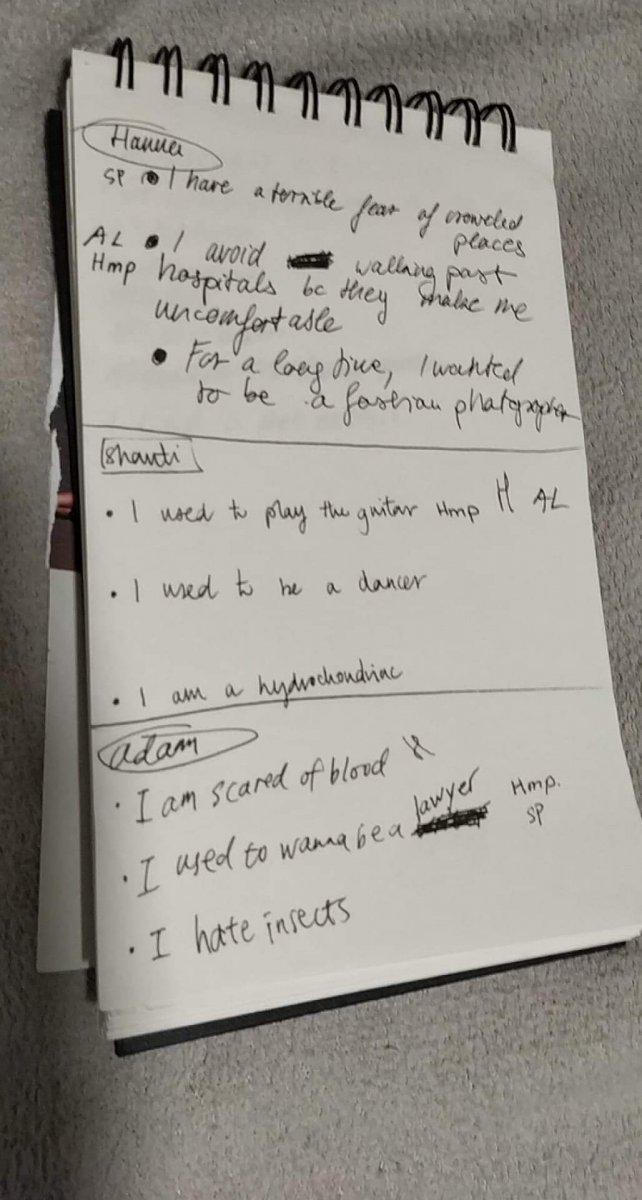 Hanna
SP • I have a terrible fear of crowded
places
AL • I avoid walking past
Hmp hospitals bc they make me
uncomfortable
• For a long time, I wanted
to be a fashion photgrapher
Shanti
• I used to play the guitar Hmp H AL
• I used to be a dancer
• I am a hydrochondriac
adam
• I am scared of blood
• I used to wanna be a lawyer Hmp.
SP
• I hate insects